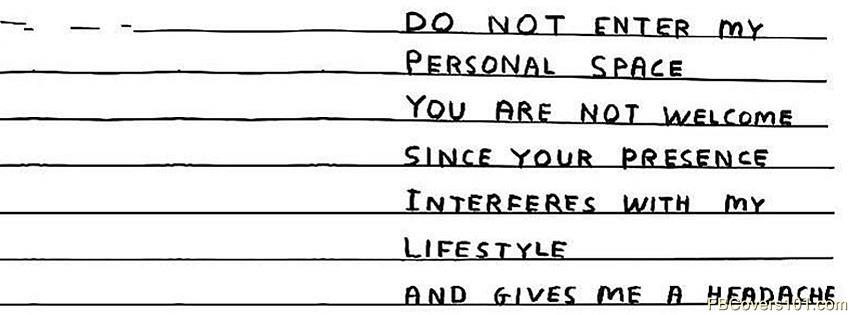 DO NOT ENTER MY
PERSONAL SPACE
YOU ARE NOT WELCOME
SINCE YOUR PRESENCE
INTERFERES WITH MY
LIFESTYLE
AND GIVES ME A HEADACHE
FBCovers101.com